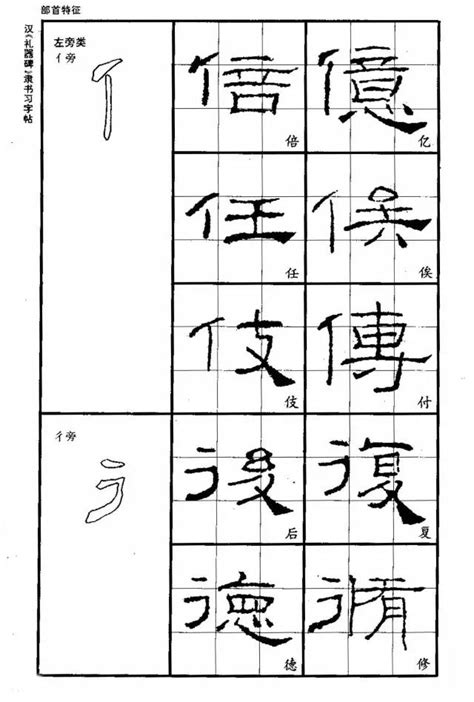 部首特征
汉《礼器碑》隶书习字帖
左旁类
亻旁
倍 億
倍 亿
任
任 俟
伎 傳
伎 付
彳旁
後 復
后 复
德 脩
德 修